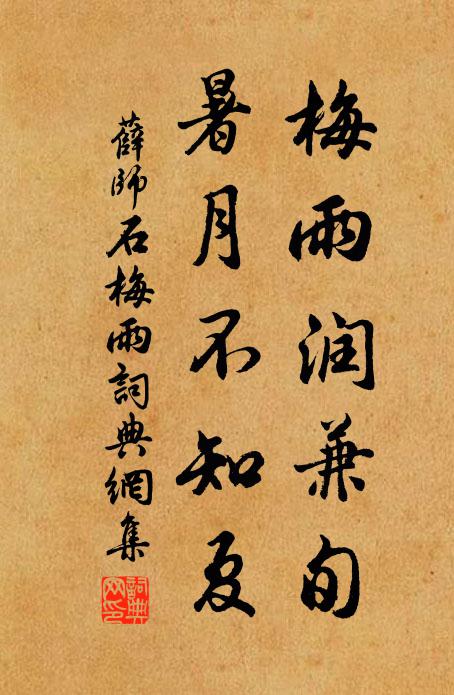 梅雨润兼旬
暑月不知夏
薛師石梅雨詞典網集
詞典网印